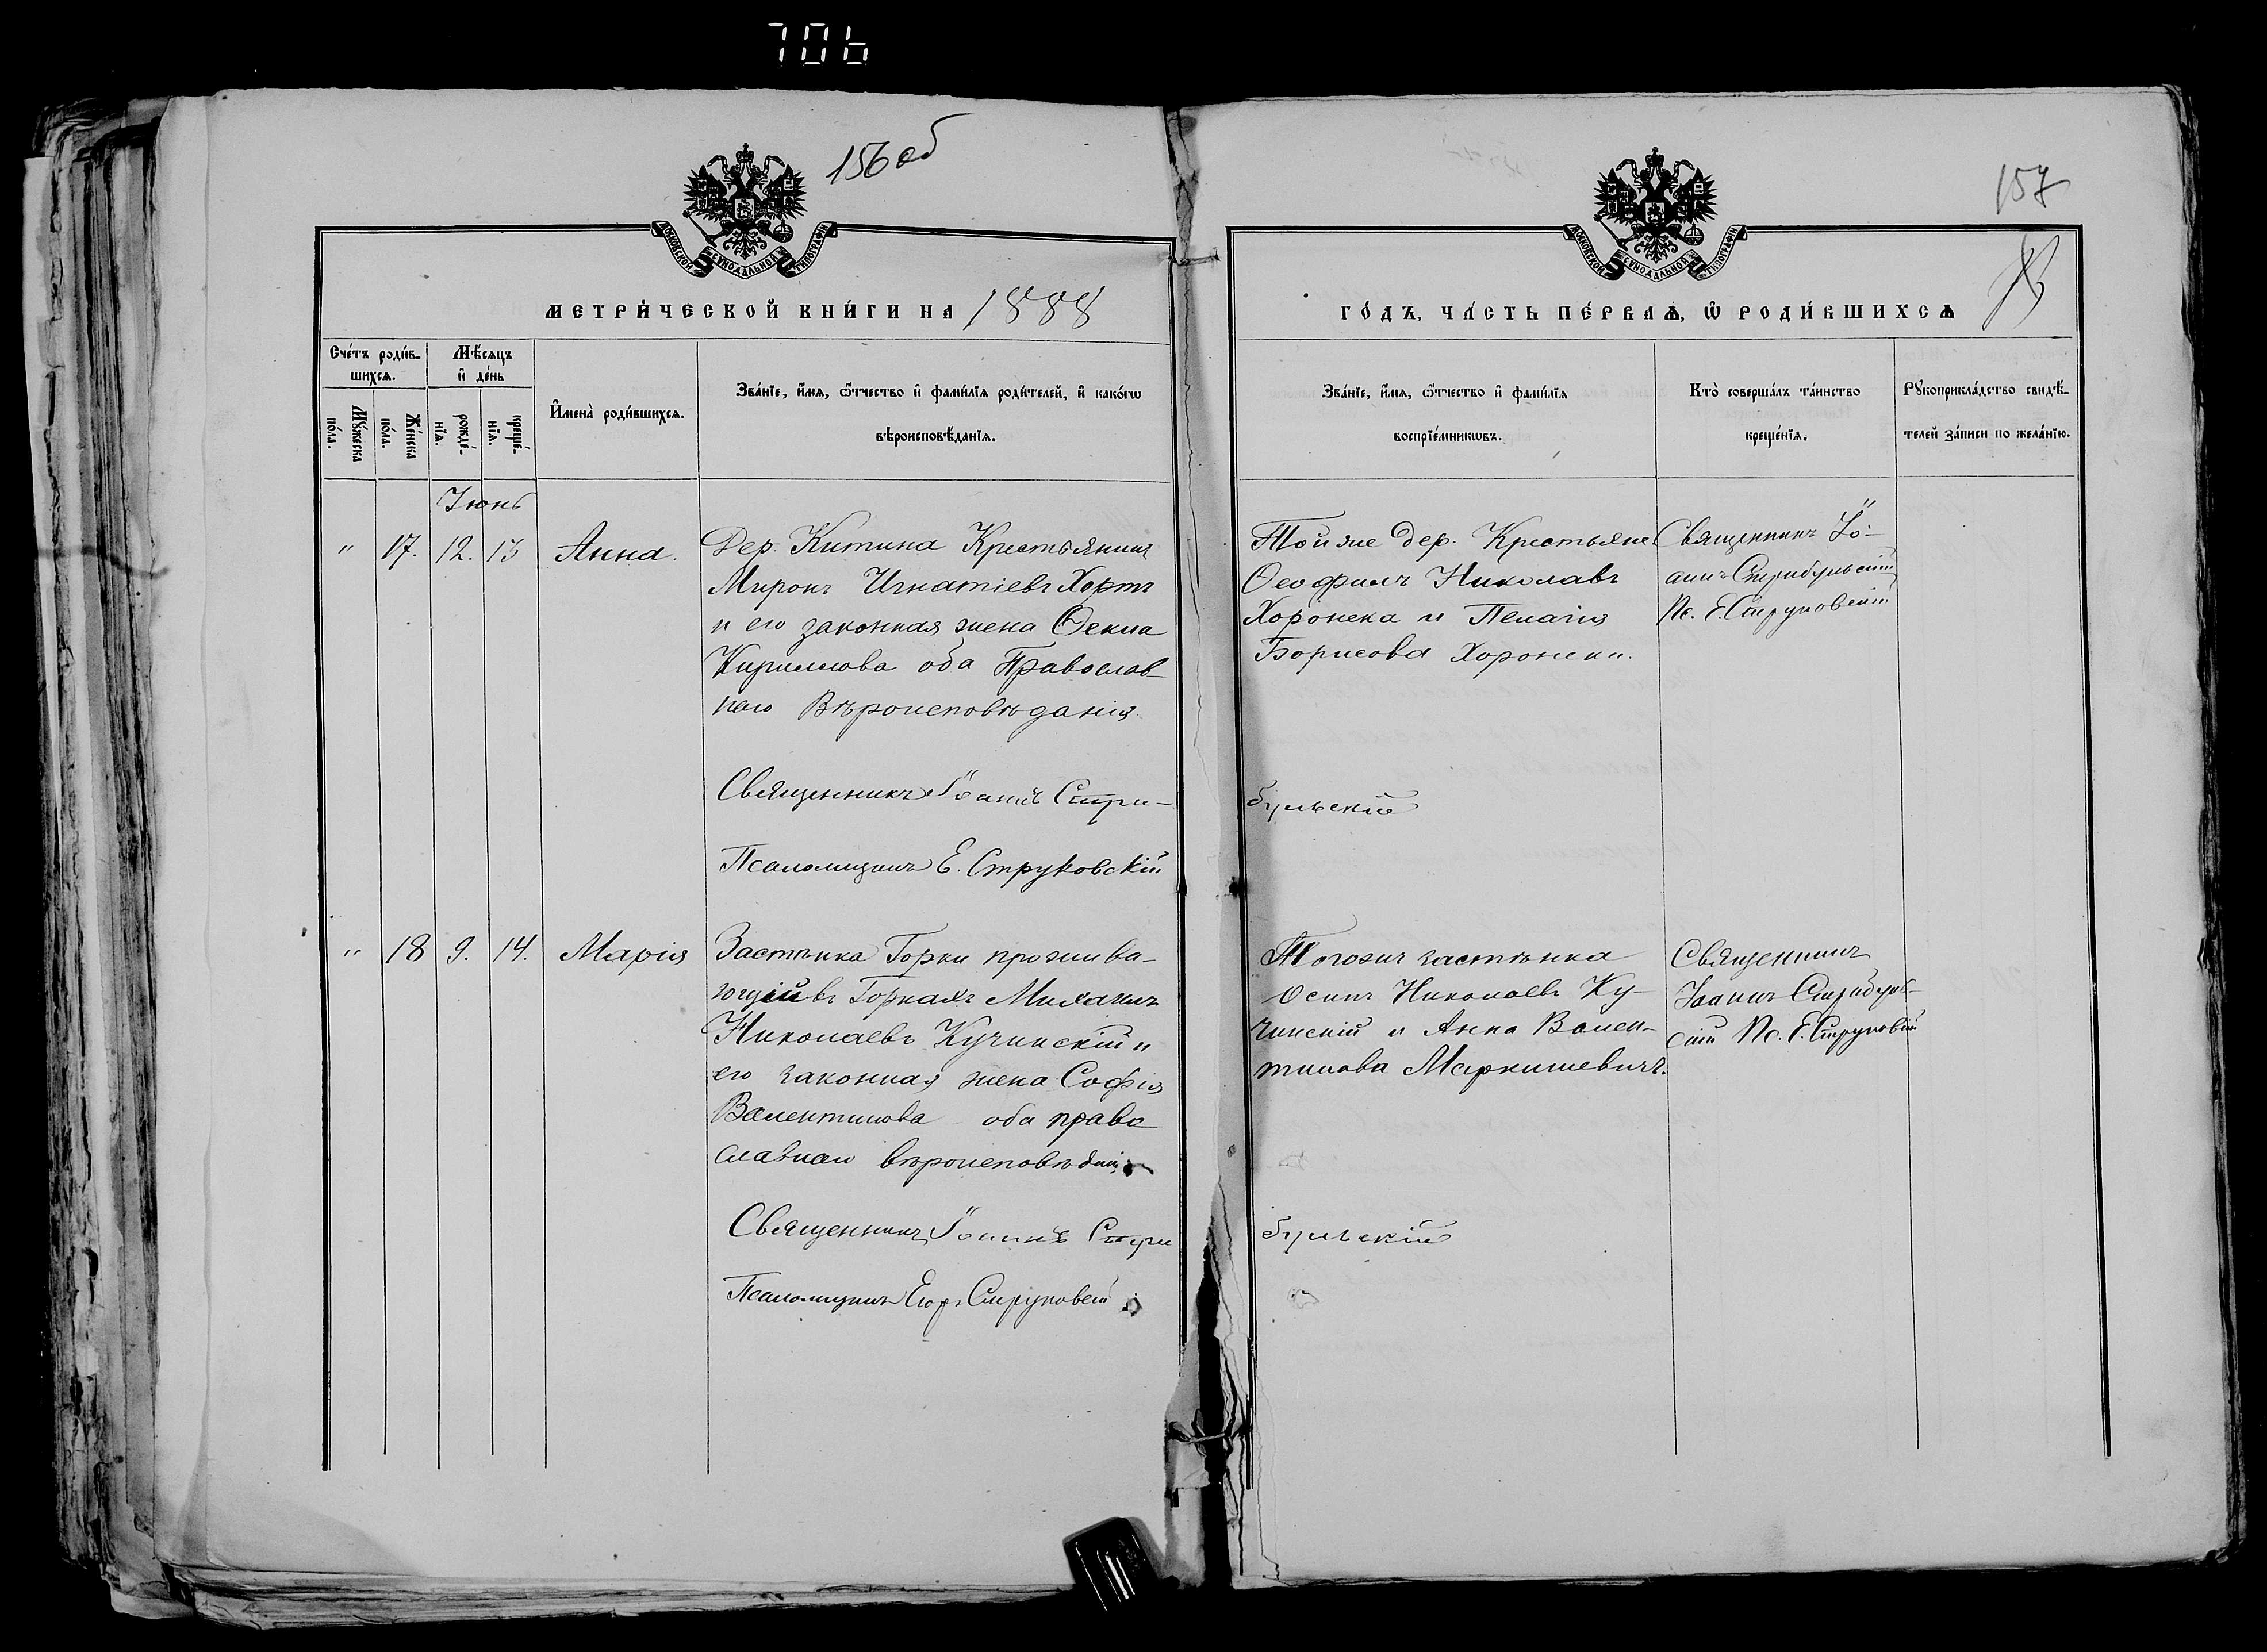 706
156 об
МОСКОВСКОЙ СѴНОДАЛЬНОЙ ТИПОГРАФІИ
МЕТРИ́ЧЕСКОЙ КНИ́ГИ НА 1888
Сче́тъ роди́в-
шихсѧ.
Мѣ́сяцъ
и҆ де́нь
Мꙋ́жеска
по́ла.
Же́нска
по́ла.
рожде́-
нїѧ.
креще́-
нїѧ.
И҆мена̀ роди́вшихсѧ.
Зва́нїе, и҆́мѧ, ѻ҆́тчество и҆ фами́лїѧ роди́телей, и҆ како́гѡ
вѣроисповѣ́данїѧ.
Іюнь
" 17. 12. 13 Анна.
Дер. Китина Крестьянинъ
Миронъ Игнатіевъ Хортъ
и его законная жена Ѳекла
Кириллова оба Православ-
наго Вѣроисповѣданія.
Священникъ Іоаннъ Стри-
Псаломщикъ Е. Струковскій
" 18 9. 14. Марія
Застѣнка Горки прожива-
ющій въ Горкахъ Михаилъ
Николаевъ Кучинскій и
его законная жена Софія
Валентинова оба право
славнаго вѣроисповѣданія
Священникъ Іоаннъ Стри
Псаломщикъ Егор. Струковскій
157
МОСКОВСКОЙ СѴНОДАЛЬНОЙ ТИПОГРАФІИ
ГО́ДЪ, ЧА́СТЬ ПЕ́РВАѦ, Ѡ҆ РОДИ́ВШИХСѦ
Зва́нїе, и҆́мѧ, ѻ҆́тчество и҆ фами́лїѧ
воспрїе́мникѡвъ.
Кто̀ соверша́лъ та́инство
креще́нїѧ.
Рꙋкоприкла́дство свидѣ́-
телей за́писи по жела́нїю.
Той же дер. Крестьяне
Ѳеофилъ Николаевъ
Хоронека и Пелагія
Борисова Хоронеки.
Священникъ Іо-
аннъ Стрибульскій
Пс. Е. Струковскій
бульскій
Тогожъ застѣнка
Осипъ Николаевъ Ку-
чинскій и Анна Вален-
тинова Маркишевичъ.
Священникъ
Іоаннъ Стрибуль-
скій Пс. Е. Струковскій
бульскій